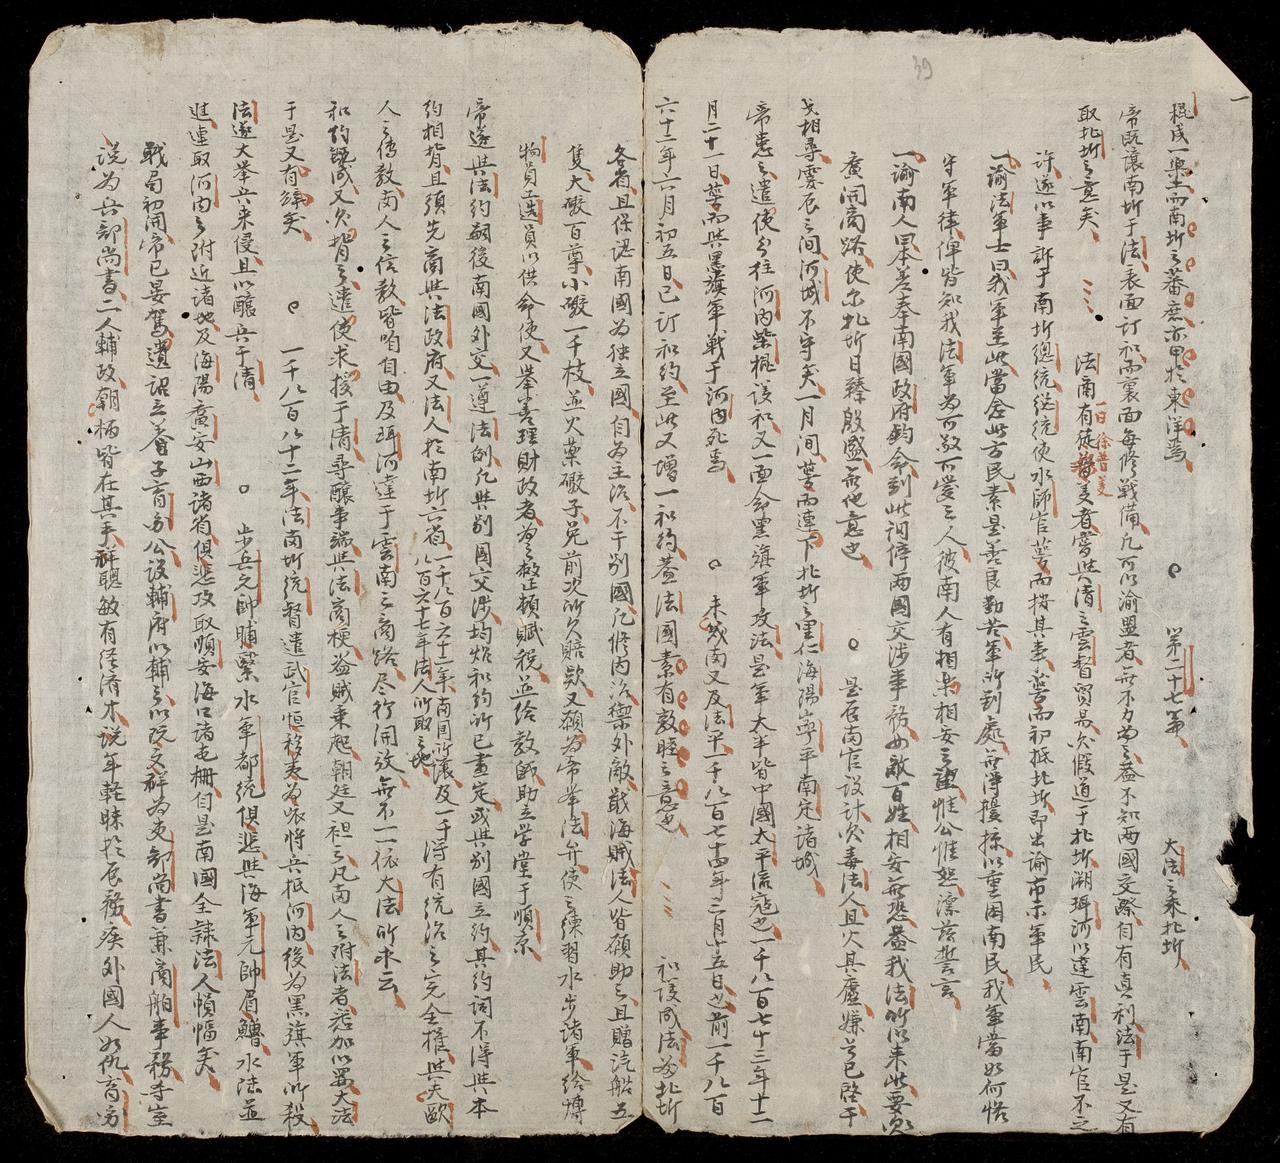 39
一
搃成一樂土而南圻之蕃庶亦甲於東洋焉　第二十七第　大法之乘北圻
帝既讓南圻于法表面訂和而裏面每修戰備凡可以渝盟者無不力為之蓋不知兩國交際自有真利法于是又有
取北圻之意矣　法商有徐普芰者嘗與清之雲督貿易欠假道于北圻溯珥河以達雲南南官不之
一曰徐普芰
許遂以事訴于南圻總統總統使水師官萼而按其事萼而初抵北圻即出諭市示軍民
一諭法軍士曰我軍至此當念此方民素是善良勤苦軍所到處毋得擾掠以重困南民我軍當如何恪
守軍律俾皆知我法軍為可敬可愛之人彼南人有相樂相安之望惟公惟恕凜茲誓言
一諭南人曰本差奉南國政府鈞命到此詞停兩國交涉事務如敝百姓相安無恙蓋我法所以來此要欠
廣開商路使尔北圻日臻殷盛無他意也　是辰南官設計欠毒法人且火其廬嫌㝵已啓干
戈相尋霎辰之間河城不守矣一月間萼而連下北圻之里仁海陽寧平南定諸城
帝患之遣使分往河內柴棍議和又一面命黑旗軍攻法是軍太半皆中國太平流寇也一千八百七十三年十二
月二十一日萼而與黑旗軍戰于河內死焉　未幾南又及法平一千八百七十四年三月十五日也前一千八百
六十二年六月初五日已訂和約至此又增一和約蓋法國素有敦睦之意也　和議成法為北圻
各省且保認南國為独立國自為主治不干別國凡修內治禦外敵戢海賊法人皆願助之且贈汽船五
隻大礮百尊小礮一千枝並火藥礮子免前次所欠賠欵又願為帝举法弁使之練習水步諸軍給博
物員工造員以供命使又举善理財政者為之整頓賦税並給教師助立学堂于順京
帝遂與法約嗣後南國外交一遵法例凡與別國交涉均炤和約所已畫定或與別國立約其約詞不得與本
約相背且須先商與法政府又法人於南圻六省一千八百六十二年南國所讓及一千八百六十七年法人所取之地得有統治之完全權與夫歐
人之傳教南人之信教皆咱自由及珥河達于雲南之商路尽行開放無不一一依大法所求云
和約既成又欠背之遣使求援于清尋釀事端與法商梗盗賊乘起朝廷又袒之凡南人之附法者悉加以罪大法
于是又有辭矣　一千八百八十二年法南圻統督遣武官恒移夷為帥將兵抵河內後為黑旗軍所殺
法遂大举兵來侵且以釀兵于清　步兵之帥晡緊水軍都統俱悲與海軍元帥眉鱛水法並
進連取河內之附近諸地及海陽廣安山西諸省俱悲攻取順安海口諸屯柵自是南國全隸法人幀幅矣
戰局初開帝已晏駕遺詔立養子育为公設輔府以輔之以阮文祥為吏部尚書兼商舶事務孝室
說為兵部尚書二人輔政朝柄皆在其手祥聰敏有经済才說年軽昧於辰務疾外國人如仇育为